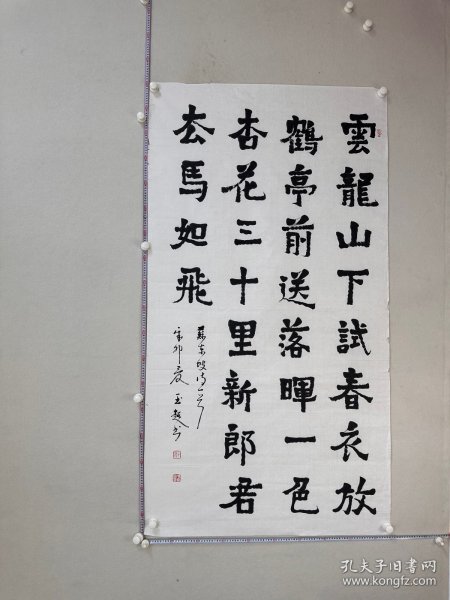 雲龍山下試春衣放
鶴亭前送落暉一色
杏花三十里新郎君
去馬如飛
蘇東坡詩一首
辛卯夏 玉超書
孔夫子旧书网
www.kongfz.com